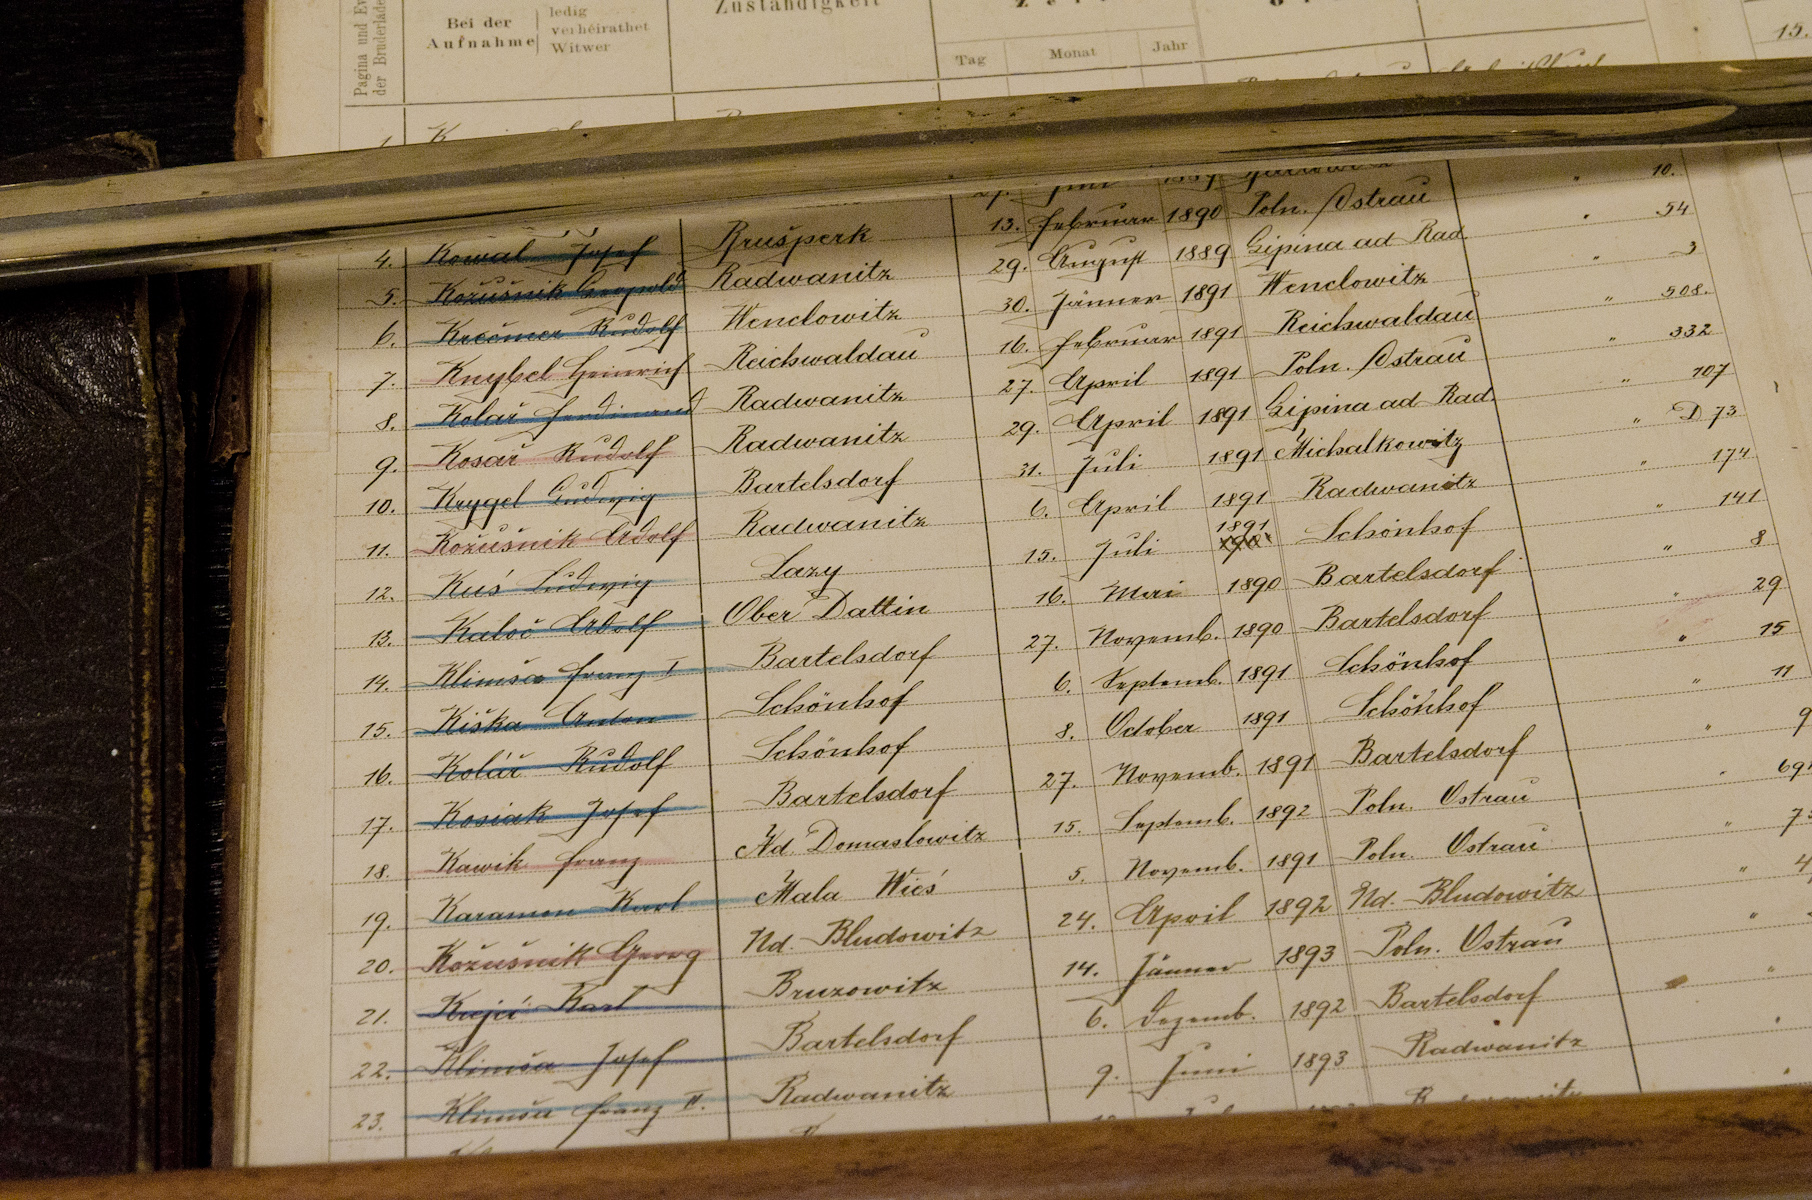 Pagina und
der Bruderlade
Bei der
Aufnahme
ledig
verheirathet
Witwer
Zuständigkeit
Tag Monat Jahr
15.
4. Kowal Josef Brušperk 13. Februar 1890 Poln. Ostrau 10.
5. Kožušnik Leopold Radwanitz 29. August 1889 Lipina ad Rad. " 54
6. Krečmer Rudolf Wenclowitz 30. Jänner 1891 Wenclowitz " 3
7. Knybel Heinrich Reichwaldau 16. Februar 1891 Reichwaldau " 508.
8. Kolař Ferdinand Radwanitz 27. April 1891 Poln. Ostrau " 332
9. Kosař Rudolf Radwanitz 29. April 1891 Lipina ad Rad. " 107
10. Krygel Ludwig Bartelsdorf 31. Juli 1891 Michalkowitz " D 73
11. Kožušnik Adolf Radwanitz 6. April 1891 Radwanitz " 174
12. Kuś Ludwig Lazy 15. Juli 1891 Schönhof " 141
13. Kaloč Adolf Ober Dattin 16. Mai 1890 Bartelsdorf " 8
14. Klimša Franz I Bartelsdorf 27. Novemb. 1890 Bartelsdorf " 29
15. Kiška Anton Schönhof 6. Septemb. 1891 Schönhof " 15
16. Kolář Rudolf Schönhof 8. October 1891 Schönhof " 11
17. Kosiak Josef Bartelsdorf 27. Novemb. 1891 Bartelsdorf " 9
18. Kawik Franz Nd. Domaslowitz 15. Septemb. 1892 Poln. Ostrau
19. Karamon Karl Mala Wieś 5. Novemb. 1891 Poln. Ostrau
20. Kožušnik Georg Nd. Bludowitz 24. April 1892 Nd. Bludowitz
21. Krejčí Karl Bruzowitz 14. Jänner 1893 Poln. Ostrau
22. Klimša Josef Bartelsdorf 6. Dezemb. 1892 Bartelsdorf
23. Klimša Franz II. Radwanitz 9. Juni 1893 Radwanitz